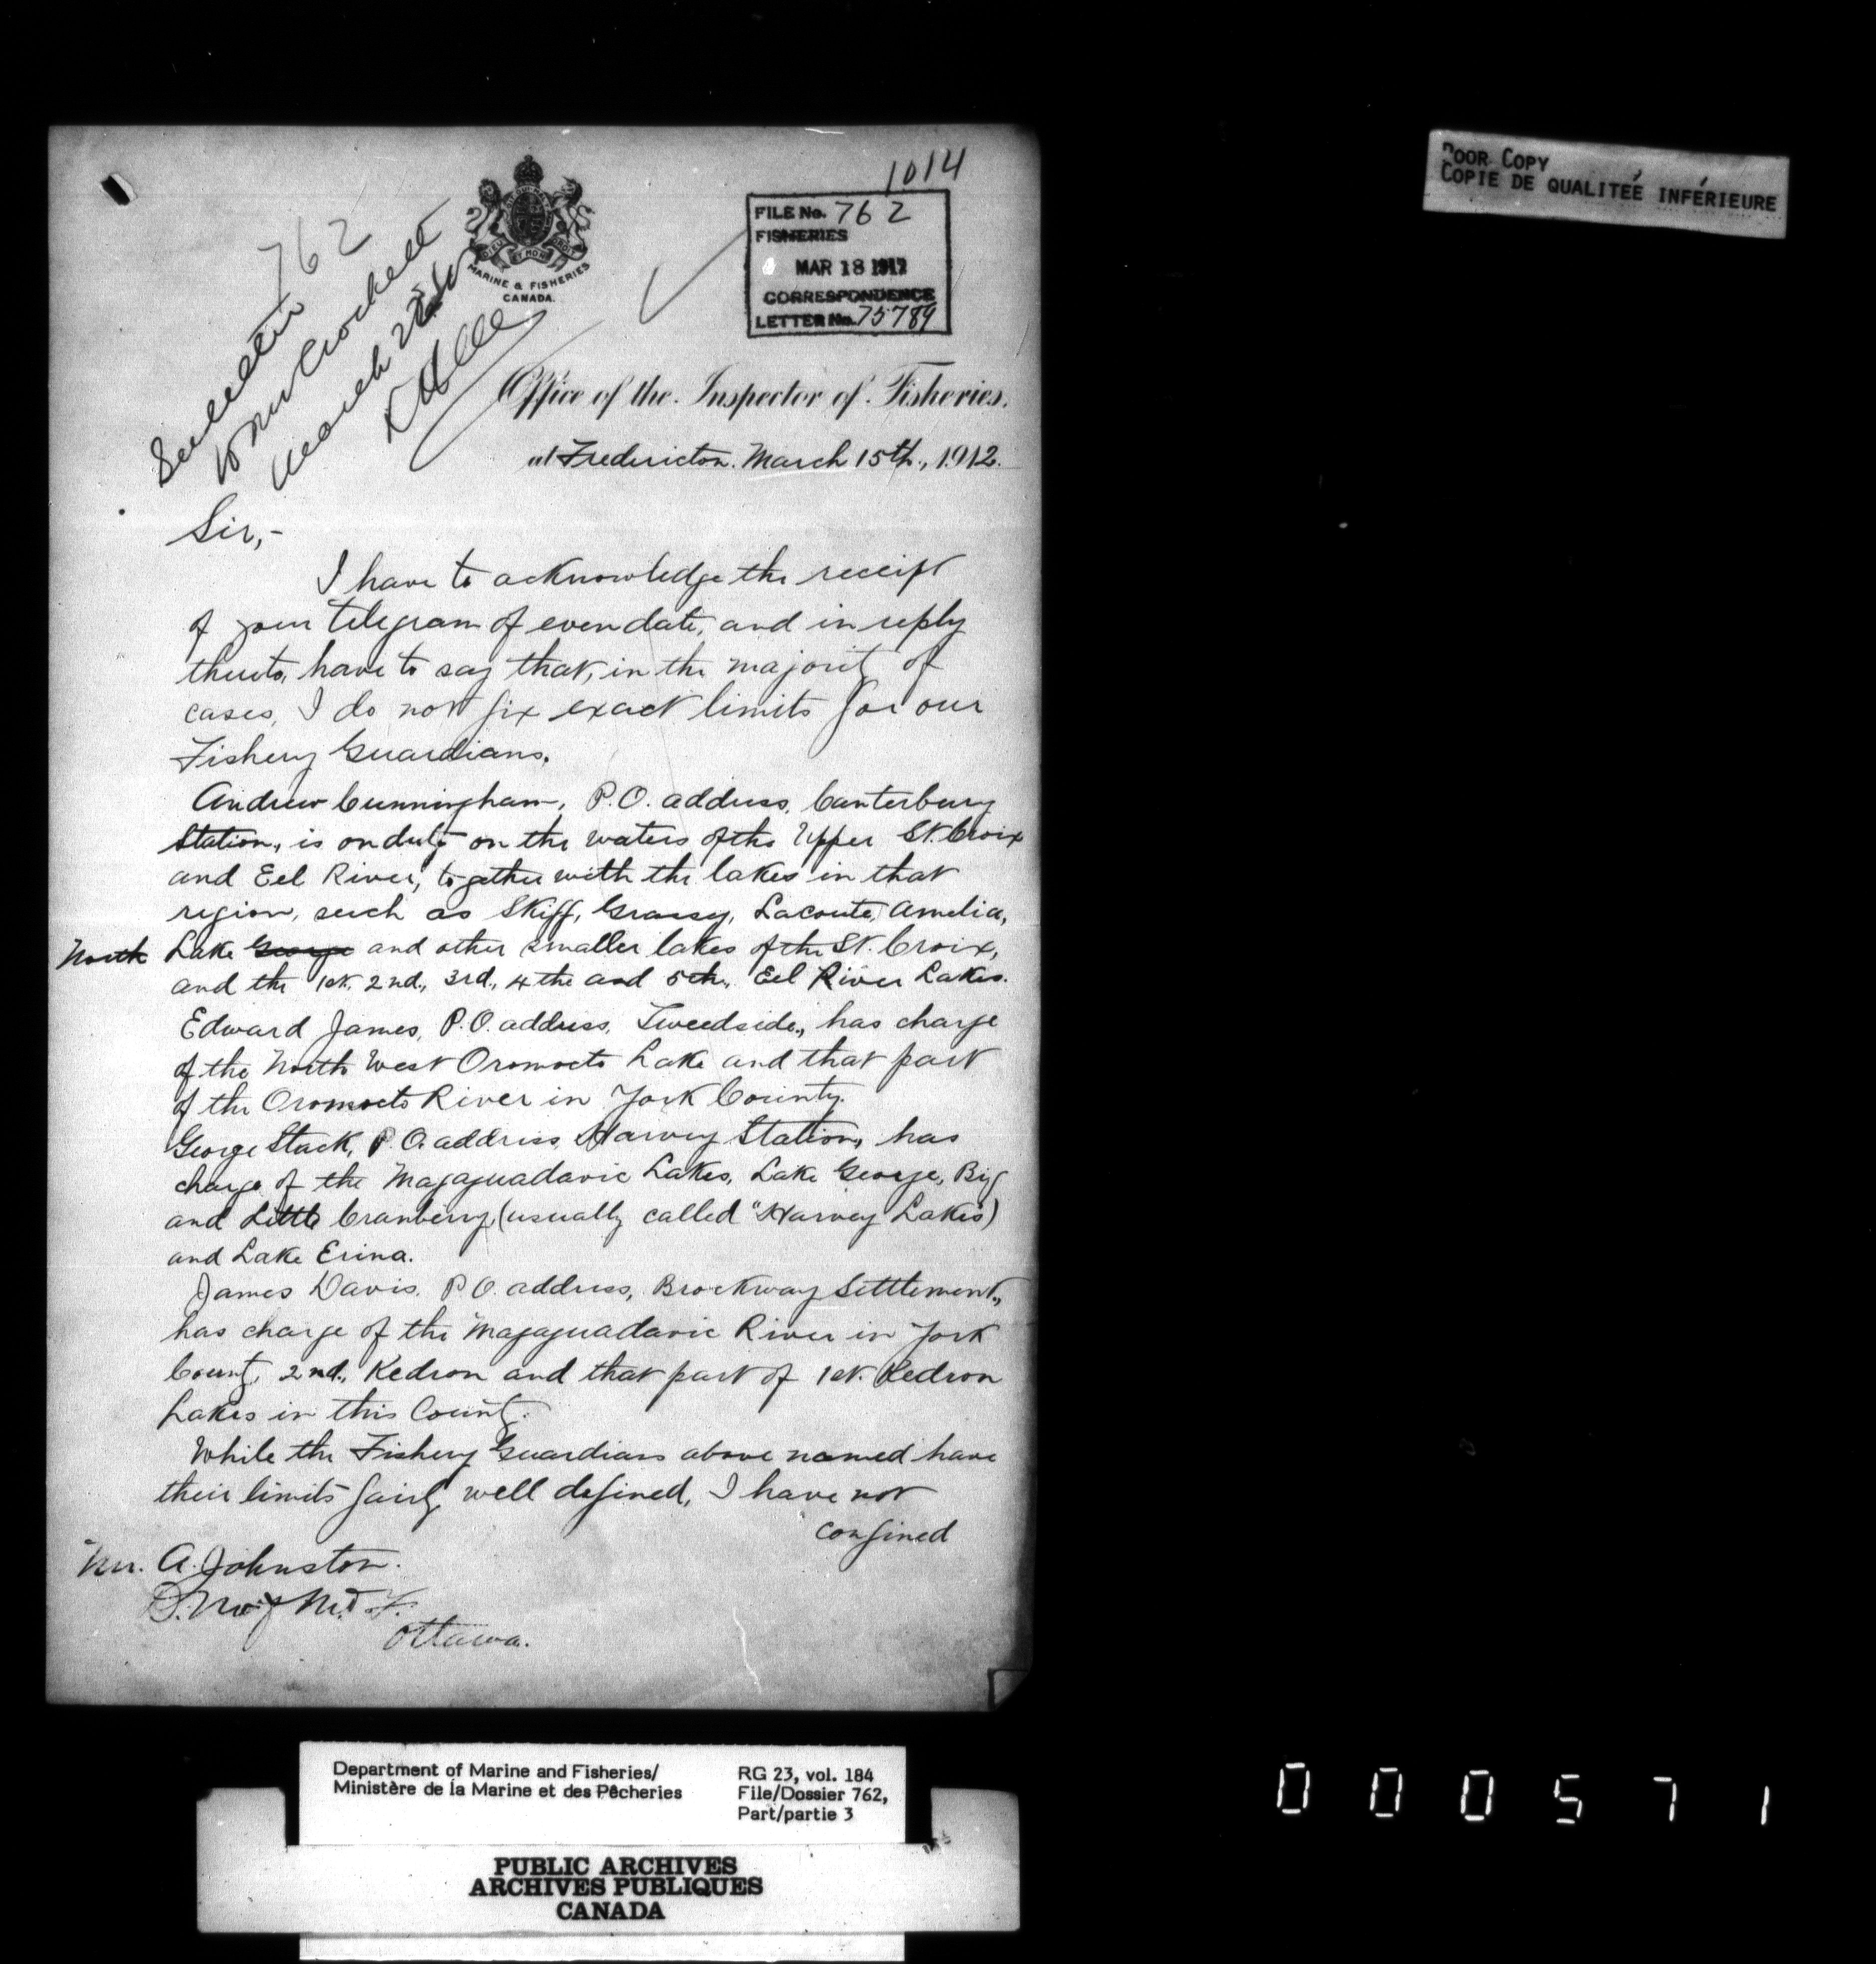 POOR COPY
COPIE DE QUALITEÉ INFÉRIEURE
1014
762
FILE No. 762
FISHERIES
MAR 18 1912
CORRESPONDENCE
LETTER No. 75789
MARINE & FISHERIES
CANADA.
to Mr Crockett
March
Office of the Inspector of Fisheries.
at Fredericton. March 15th., 1912.
Sir,-
I have to acknowledge the receipt
of your telegram of even date, and in reply
thereto, have to say that, in the majority of
cases, I do not fix exact limits for our
Fishery Guardians.
Andrew Cunningham, P.O. address, Canterbury
Station, is on duty on the waters of the Upper St. Croix
and Eel River, together with the lakes in that
region, such as Skiff, Grassy, Lacoute, Amelia,
North Lake George and other smaller lakes of the St. Croix,
and the 1st, 2nd., 3rd., 4the and 5th., Eel River Lakes.
Edward James, P.O. address, Tweedside, has charge
of the North West Oromocto Lake and that part
of the Oromocto River in York County.
George Stack, P.O. address, Harvey Station, has
charge of the Magaguadavic Lakes, Lake George, Big
and Little Cranberry, (usually called "Harvey Lakes)
and Lake Erina.
James Davis. P.O. address, Brockway Settlement,
has charge of the Magaguadavic River in York
County, 2nd., Kedron and that part of 1st. Kedron
Lakes in this County.
While the Fishery Guardians above named have
their limits fairly well defined, I have not
confined
Mr. A. Johnston.
D. M. of M. & F.
Ottawa.
Department of Marine and Fisheries/
Ministère de la Marine et des Pêcheries
RG 23, vol. 184
File/Dossier 762,
Part/partie 3
PUBLIC ARCHIVES
ARCHIVES PUBLIQUES
CANADA
000571